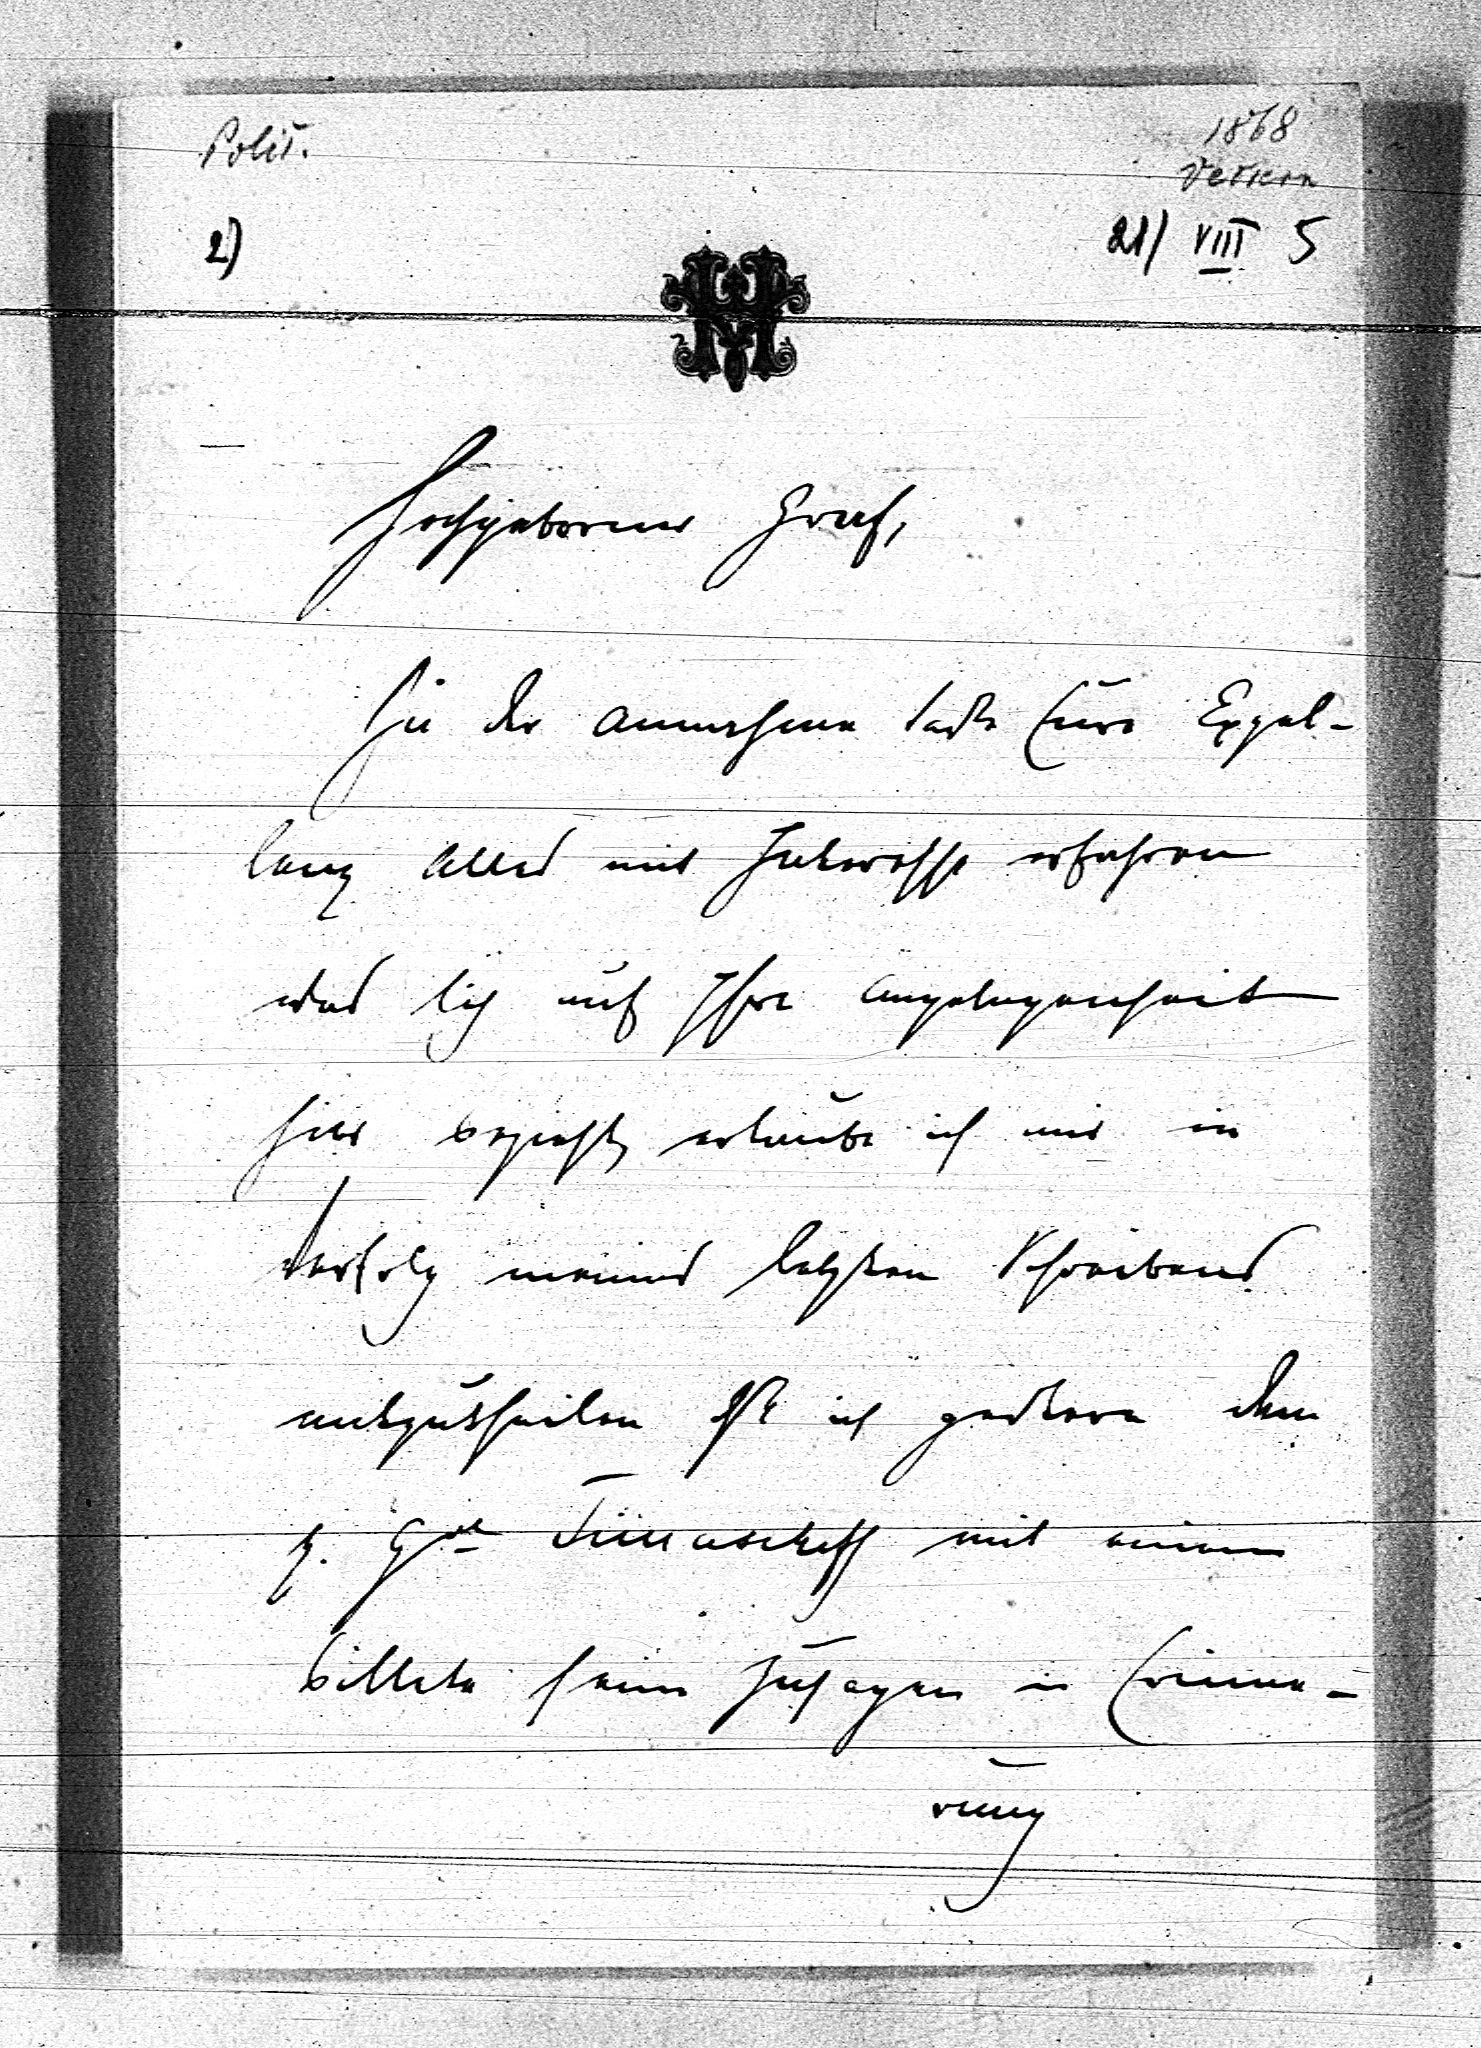 Polit.
1868
2)
21/ VIII 5
HM
Hochgeborener Graf,
In der Annahme daß Eure Excel-
lenz Alles mit Interesse erfahren
was sich auf Ihre Angelegenheit
hier bezieht, erlaube ich mir in
Verfolg meines letzten Schreibens
mitzutheilen daß ich gestern dem
H. Gnl Timascheff mit einem
Billete sein Zusagen in Erinne-
rung